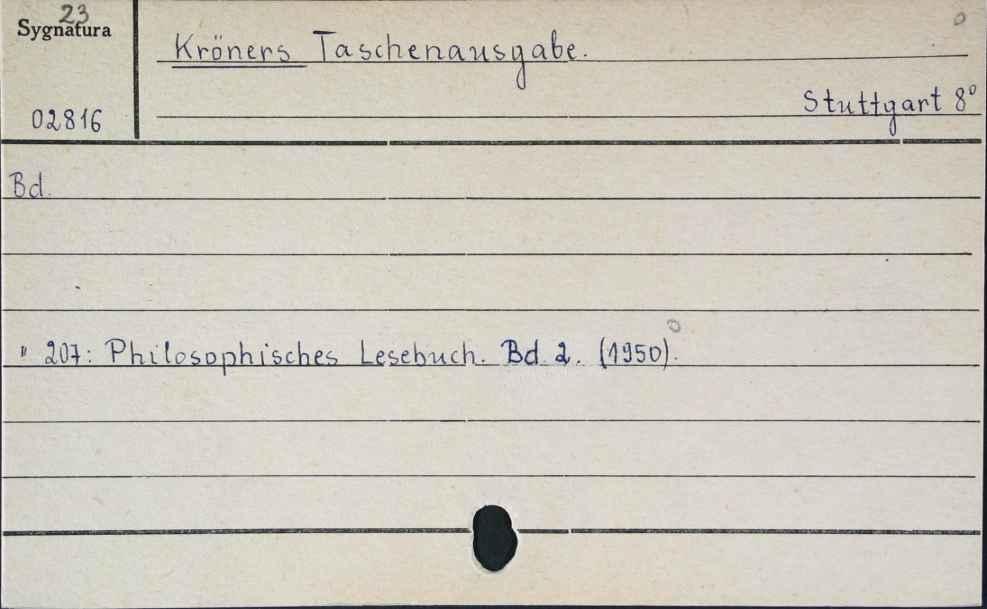 23
Sygnatura
02816
Kröners Taschenausgabe.
Stuttgart 8°
Bd.
" 207: Philosophisches Lesebuch. Bd. 2. (1950).